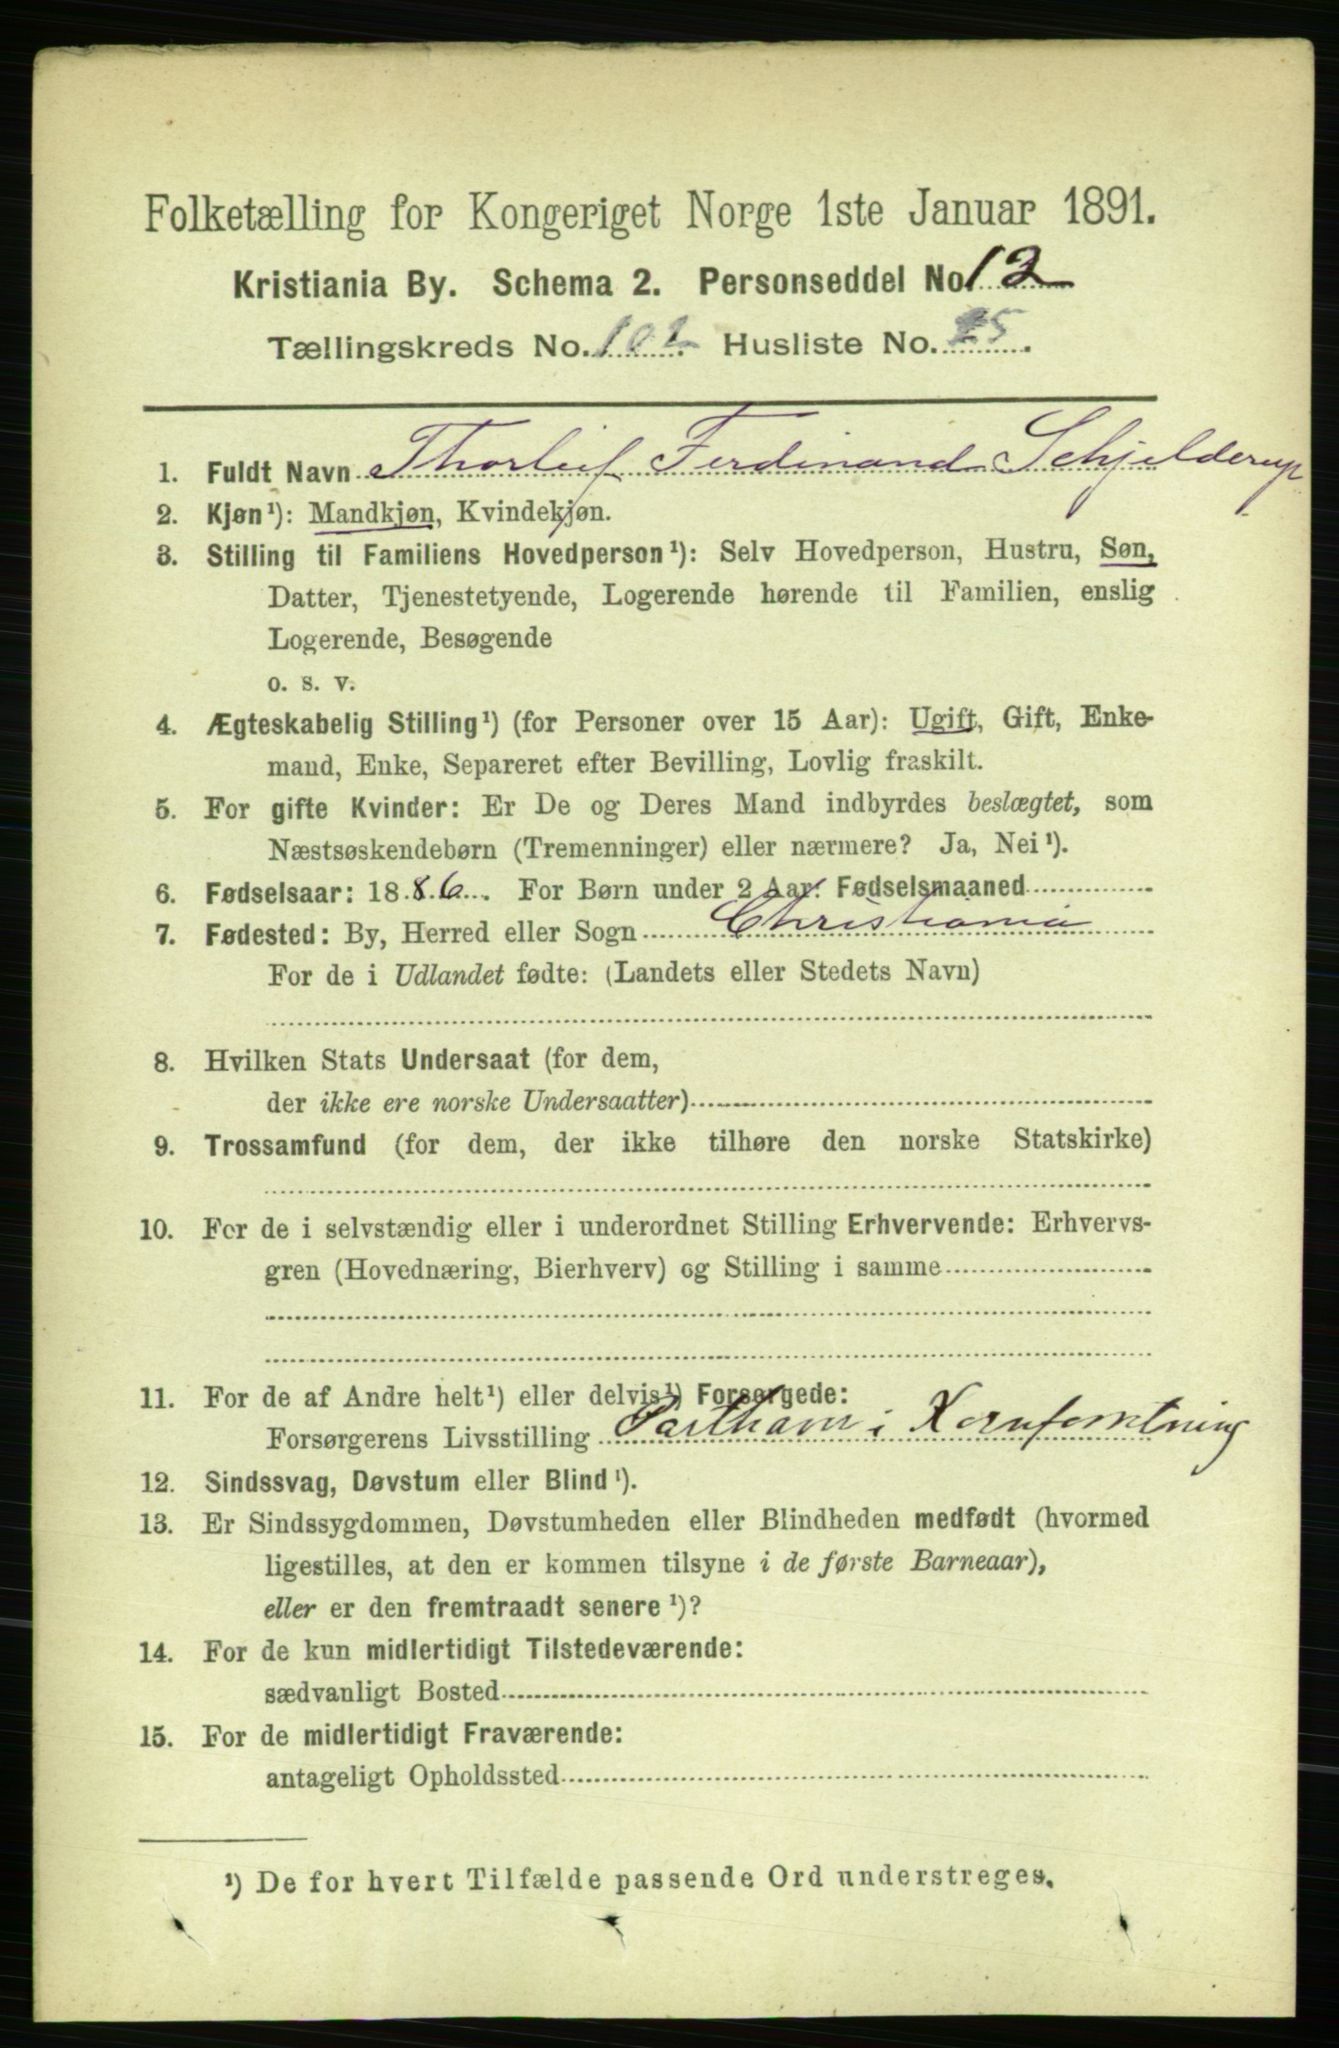 Folketælling for Kongeriget Norge 1ste Januar 1891.
Kristiania By. Schema 2. Personseddel No. 12
Tællingskreds No. 102 Husliste No. 25.
1. Fuldt Navn Thorleif Ferdinand Schjelderup
2. Kjøn¹): Mandkjøn, Kvindekjøn.
3. Stilling til Familiens Hovedperson¹): Selv Hovedperson, Hustru, Søn,
Datter, Tjenestetyende, Logerende hørende til Familien, enslig
Logerende, Besøgende
o. s. v.
4. Ægteskabelig Stilling¹) (for Personer over 15 Aar): Ugift, Gift, Enke-
mand, Enke, Separeret efter Bevilling, Lovlig fraskilt.
5. For gifte Kvinder: Er De og Deres Mand indbyrdes beslægtet, som
Næstsøskendebørn (Tremenninger) eller nærmere? Ja, Nei¹).
6. Fødselsaar: 1886. For Børn under 2 Aar: Fødselsmaaned
7. Fødested: By, Herred eller Sogn Christiania
For de i Udlandet fødte: (Landets eller Stedets Navn)
8. Hvilken Stats Undersaat (for dem,
der ikke ere norske Undersaatter)
9. Trossamfund (for dem, der ikke tilhøre den norske Statskirke)
10. For de i selvstændig eller i underordnet Stilling Erhvervende: Erhvervs-
gren (Hovednæring, Bierhverv) og Stilling i samme
11. For de af Andre helt¹) eller delvis¹) Forsørgede:
Forsørgerens Livsstilling i
12. Sindssvag, Døvstum eller Blind¹).
13. Er Sindssygdommen, Døvstumheden eller Blindheden medfødt (hvormed
ligestilles, at den er kommen tilsyne i de første Barneaar),
eller er den fremtraadt senere¹)?
14. For de kun midlertidigt Tilstedeværende:
sædvanligt Bosted
15. For de midlertidigt Fraværende:
antageligt Opholdssted
¹) De for hvert Tilfælde passende Ord understreges.